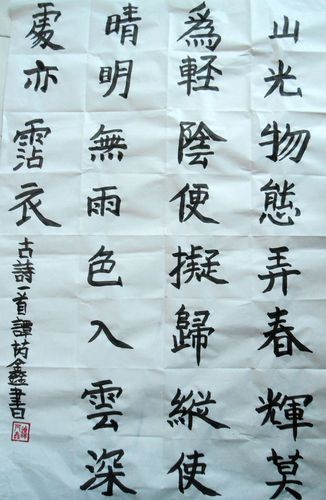 山光物態弄春輝莫
爲軽陰便擬歸縱使
晴明無雨色入雲深
處亦霑衣
古詩一首譚鑫書